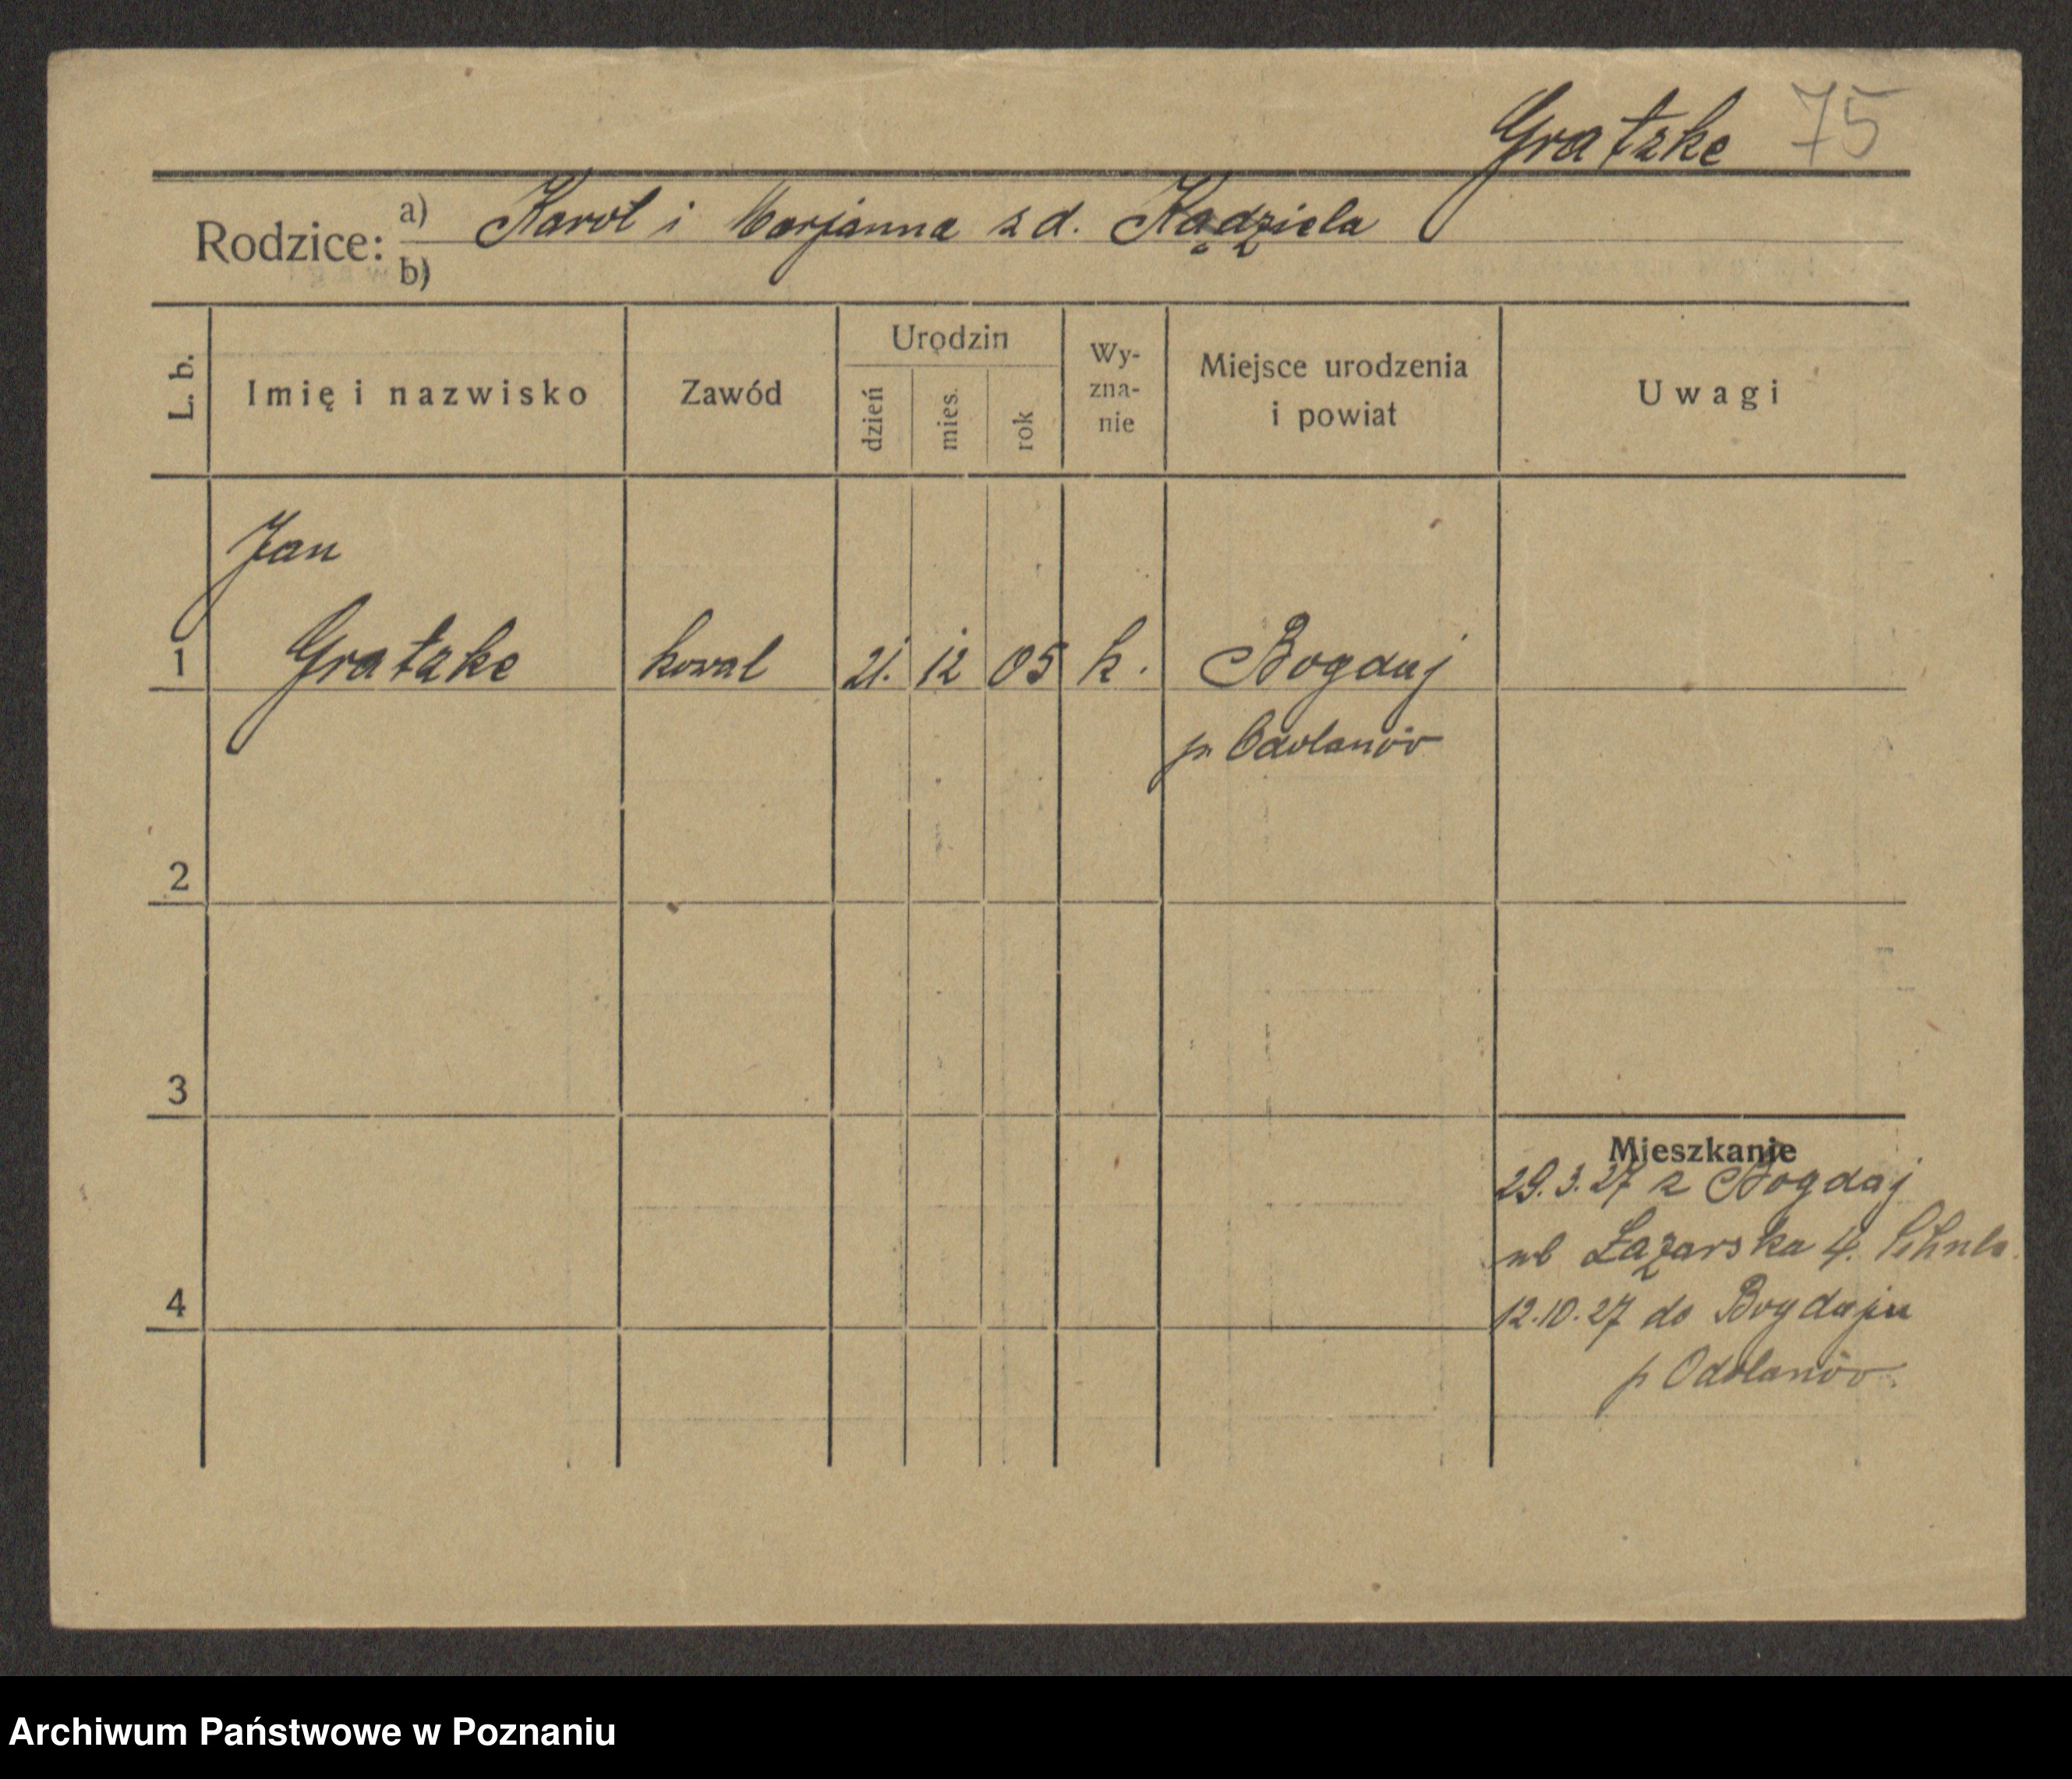 Gratzke 75
Rodzice: a) Karol i Marjanna z d. Kądziela
b)
L. b. Imię i nazwisko Zawód Urodzin dzień mies. rok Wy-zna-nie Miejsce urodzenia i powiat Uwagi
Jan
1 Gratzke kowal 21. 12 05 k. Bogdaj
p. Odolanów
2
3
Mieszkanie
29.3.27 z Bogdaj
ul Łazarska 4.
4 12.10.27 do Bogdaju
p Odolanów.
Archiwum Państwowe w Poznaniu